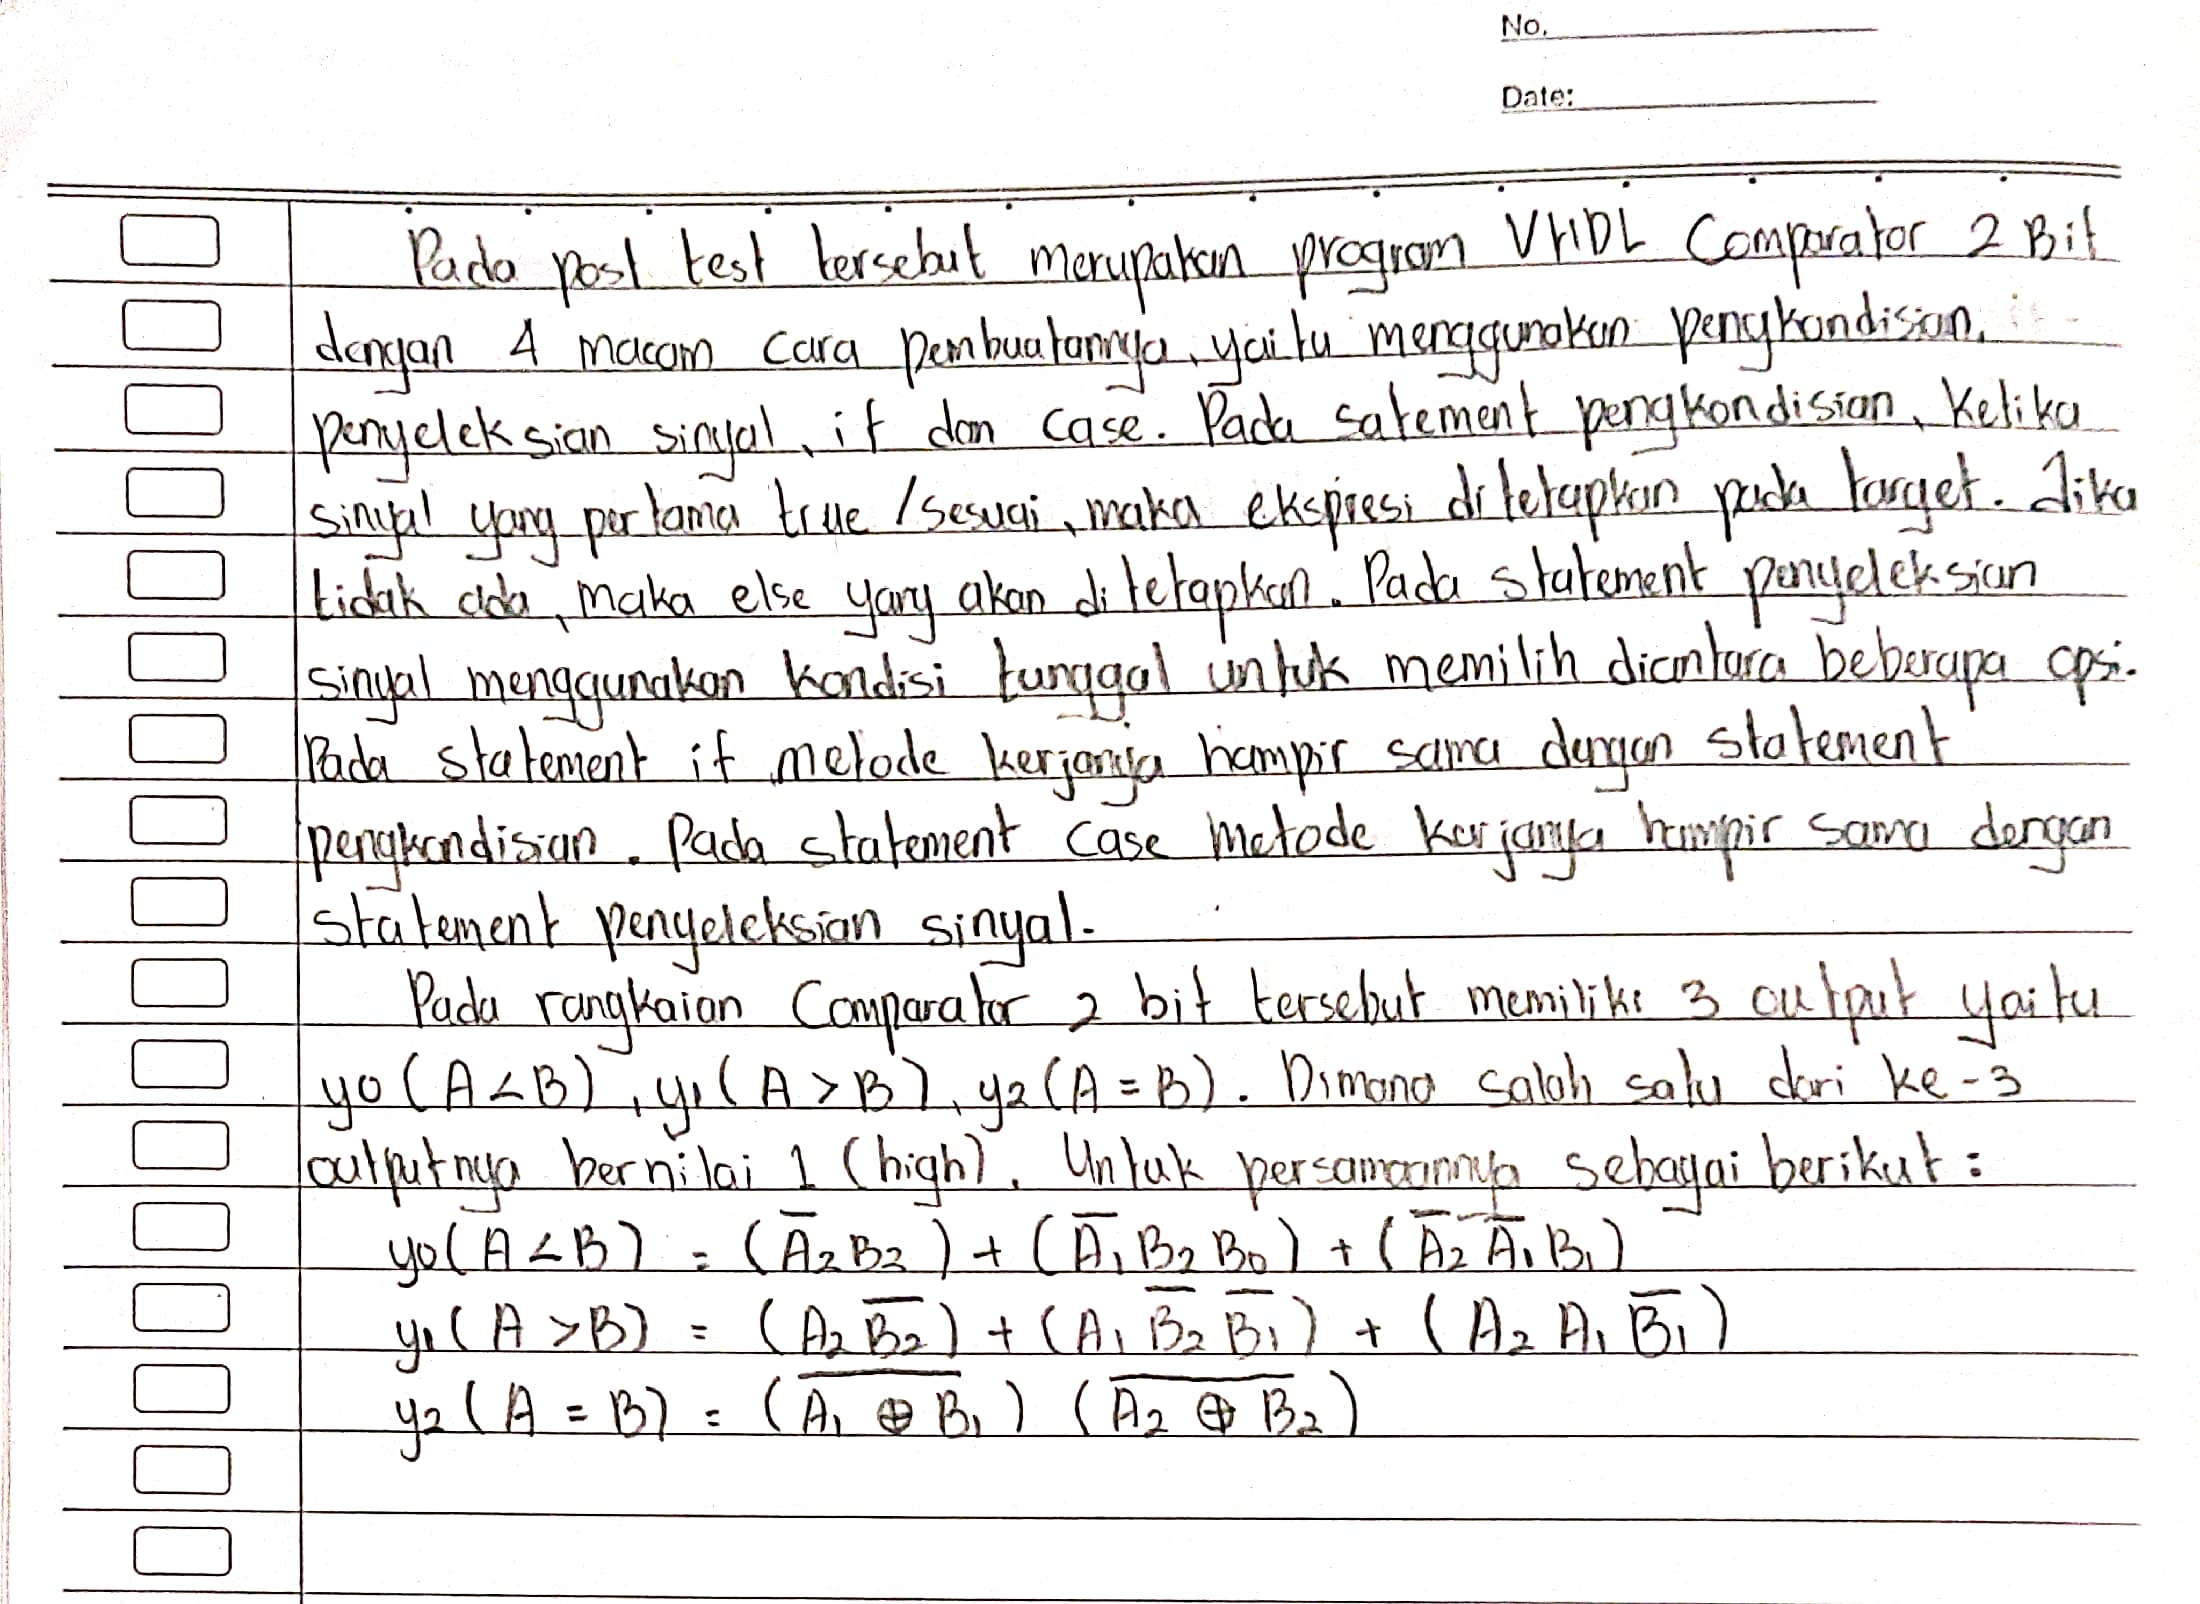 No.
Date:
Pada post test tersebut merupakan program VHDL Comparator 2 Bit
dengan 4 macam cara pembuatannya, yaitu menggunakan pengkondisian,
penyeleksian sinyal, if dan case. Pada satement pengkondisian, Ketika
sinyal yang pertama true / sesuai, maka ekspresi ditetapkan pada target. Jika
tidak ada, maka else yang akan ditetapkan. Pada statement penyeleksian
sinyal menggunakan kondisi tunggal untuk memilih diantara beberapa opsi.
Pada statement if metode kerjanya hampir sama dengan statement
pengkondisian. Pada statement case metode kerjanya hampir sama dengan
statement penyeleksian sinyal.
Pada rangkaian Comparator 2 bit tersebut memiliki 3 output yaitu
y0 (A < B), y1 (A > B), y2 (A = B). Dimana salah satu dari ke-3
outputnya bernilai 1 (high). Untuk persamaannya sebagai berikut :
y0 (A < B) = (A̅₂ B₂) + (A̅₁ B₂ B₀) + (A̅₂ A̅₁ B₁)
y1 (A > B) = (A₂ B̅₂) + (A₁ B̅₂ B̅₁) + (A₂ A₁ B̅₁)
y2 (A = B) = (A̅₁̅ ̅⊕̅ ̅B̅₁) (A̅₂̅ ̅⊕̅ ̅B̅₂)